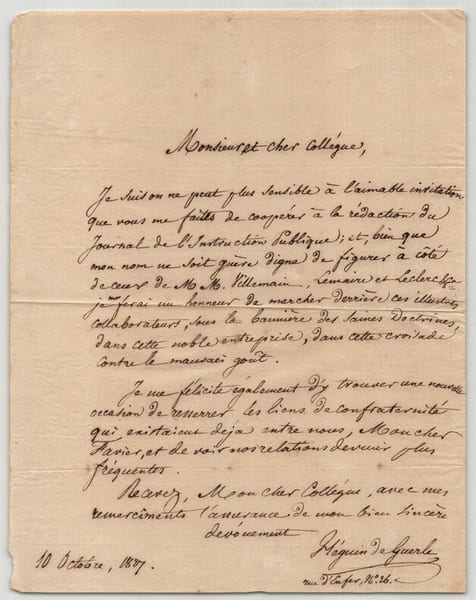 Monsieur et cher Collégue,
Je suis on ne peut plus sensible à l'aimable invitation
que vous me faites de coopérer à la rédaction du
Journal de l'Instruction Publique; et, bien que
mon nom ne soit guère digne de figurer à côté
de ceux de M M. Villemain, Lemaire et Leclerc &ca
je me ferai un honneur de marcher derrière ces illustres
collaborateurs, sous la bannière des saines Doctrines,
dans cette noble entreprise, dans cette croisade
contre le mauvais goût.
Je me félicite également d'y trouver une nouvelle
occasion de resserrer les liens de confraternité
qui existaient deja entre nous, Mon cher
Favier, et de voir nos relations devenir plus
fréquentes.
Recevez, Mon cher Collégue, avec mes
remercîments l'assurance de mon bien sincère
dévouement
Héguin de Guerle
rue d'Enfer, No 26.
10 Octobre, 1837.